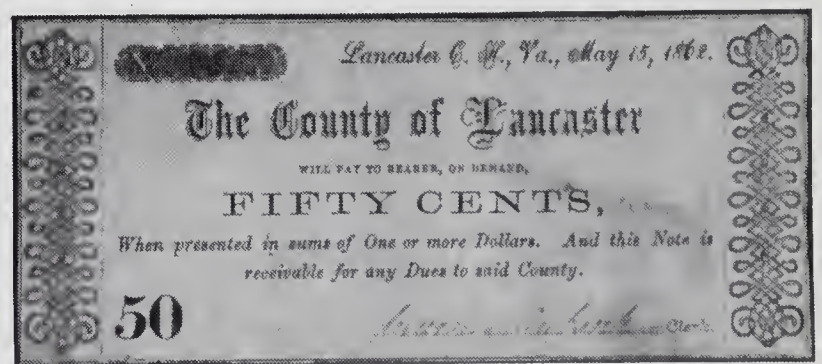 Lancaster C. H., Va., May 15, 1862.
The County of Lancaster
WILL PAY TO BEARER, ON DEMAND,
FIFTY CENTS,
When presented in sums of One or more Dollars. And this Note is
receivable for any Dues to said County.
50
Clerk.